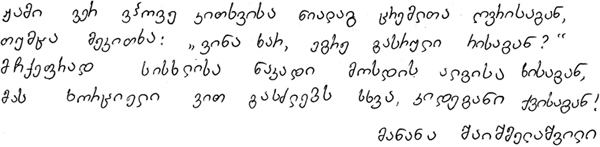 ჟამი ვერ ვპოვე კითხვისა ნიადაგ ცრემლთა ღვრისაგან,
თუმცა მეკითხა: „ვინა ხარ, ეგრე გასრული რისაგან?“
მჩქეფრად სისხლისა ნაკადი მოსდის ალვისა ხისაგან,
მას ხორციელი ვით გასძლებს სხვა, კიდეგანი ქვისაგან!
მანანა შაიშმელაშვილი